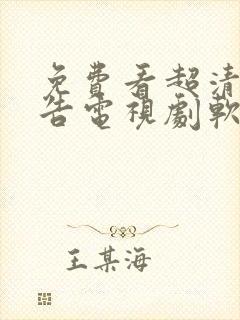 免費看超清
告電視劇軟
王某海